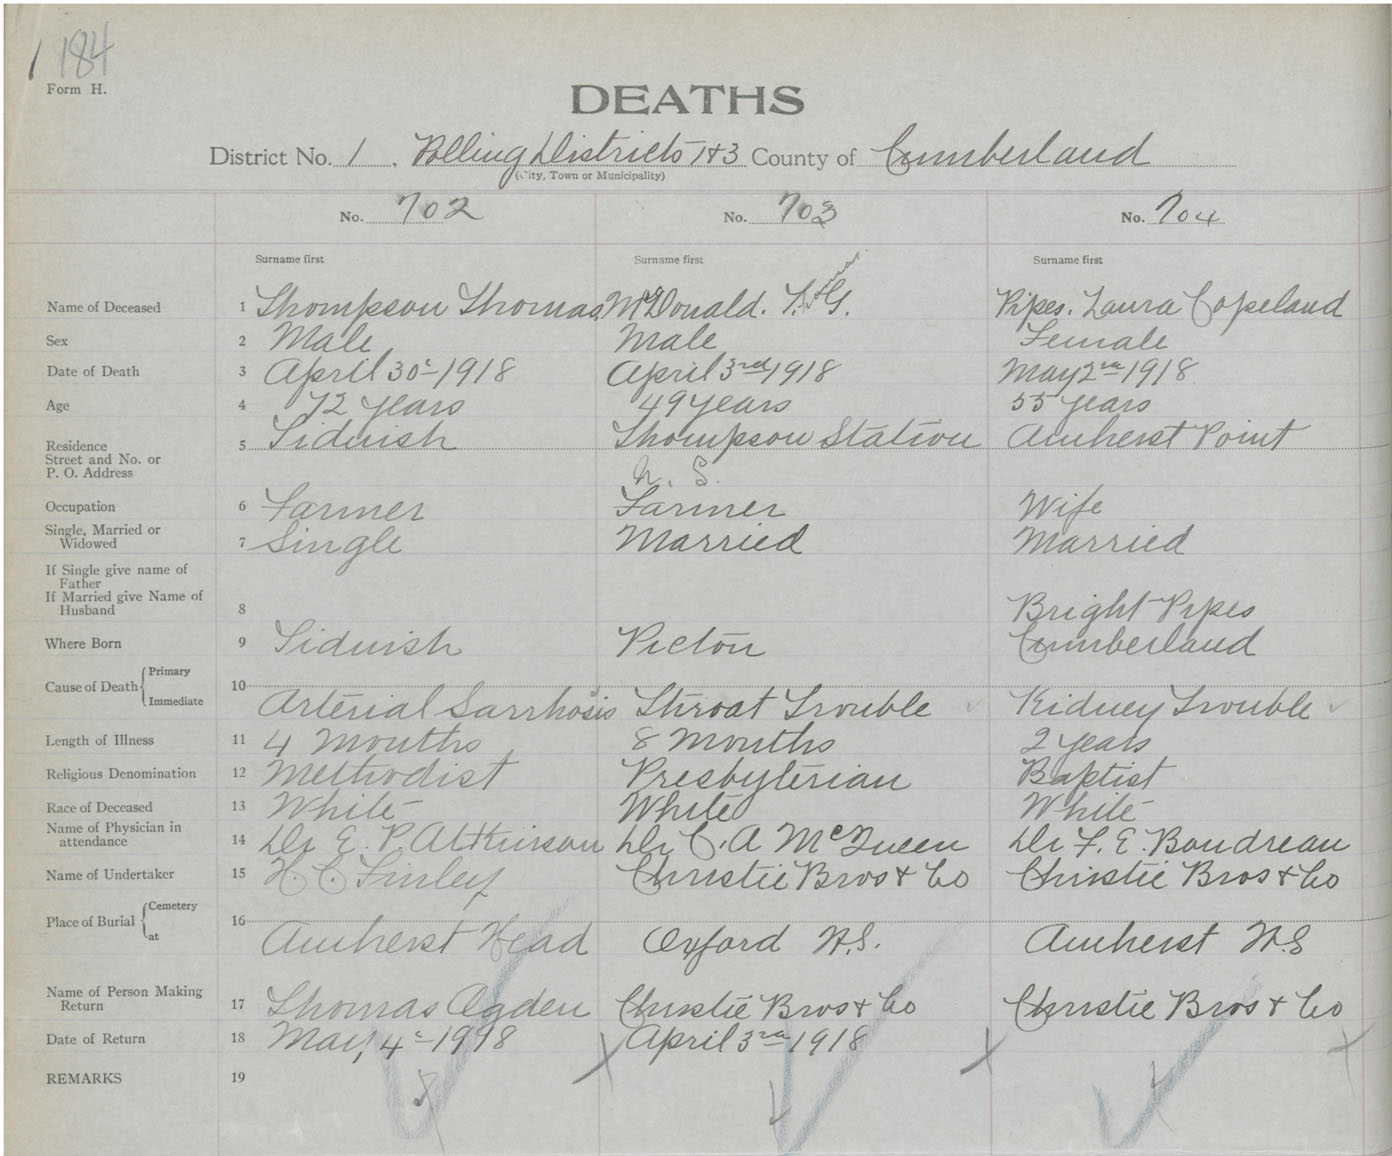 184
Form H.
DEATHS
District No. 1, Polling Districts 1+3 County of Cumberland
(City, Town or Municipality)
No. 702 No. 703 No. 704
Surname first Surname first Surname first
Name of Deceased 1 Thompson Thomas McDonald. G. Pipes. Laura Copeland
Sex 2 Male Male Female
Date of Death 3 April 30 1918 April 3rd 1918 May 2nd 1918
Age 4 72 years 49 years 55 years
Residence
Street and No. or
P. O. Address
5 Tidnish Thompson Station Amherst Point
N. S.
Occupation 6 Farmer Farmer Wife
Single, Married or
Widowed
7 Single Married Married
If Single give name of
Father
If Married give Name of
Husband
8 Bright Pipes
Where Born 9 Tidnish Pictou Cumberland
Cause of Death Primary
Immediate
10 Arterial Sarrhosis Throat Trouble Kidney Trouble
Length of Illness 11 4 Months 8 Months 2 years
Religious Denomination 12 Methodist Presbyterian Baptist
Race of Deceased 13 White White White
Name of Physician in
attendance
14 Dr E. P. Atkinson Dr C. A McQueen Dr F. E. Boudreau
Name of Undertaker 15 H. C. Finley Christie Bros + Co Christie Bros + Co
Place of Burial Cemetery
at
16 Amherst Head Oxford N.S. Amherst N.S
Name of Person Making
Return
17 Thomas Ogden Christie Bros + Co Christie Bros + Co
Date of Return 18 May 4 1918 April 3rd 1918
REMARKS 19